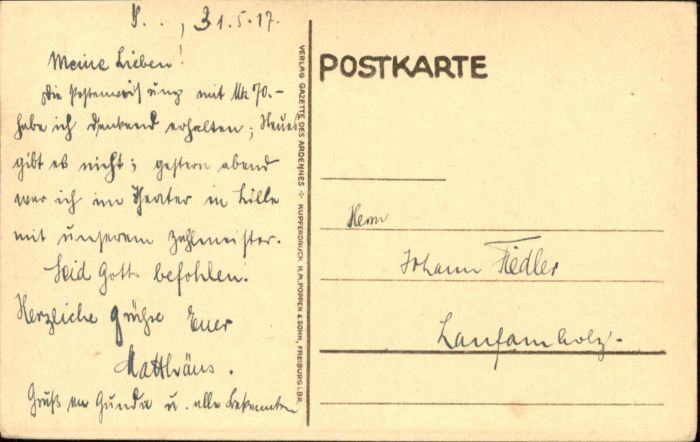 S..., 31.5.17.
Meine Lieben!
Die Postanweisung mit Mk 70.-
habe ich dankend erhalten; Neues
gibt es nicht; gestern abend
war ich im Theater in Lille
mit unserem Zahlmeister.
Seid Gott befohlen.
Herzliche Grüsse Euer
Matthäus.
Gruß an Gunda u. alle Bekannten
VERLAG GAZETTE DES ARDENNES ÷ KUPFERDRUCK H.M.POPPEN & SOHN, FREIBURG I.BR.
POSTKARTE
Herrn
Johann Fiedler
Laufamholz.